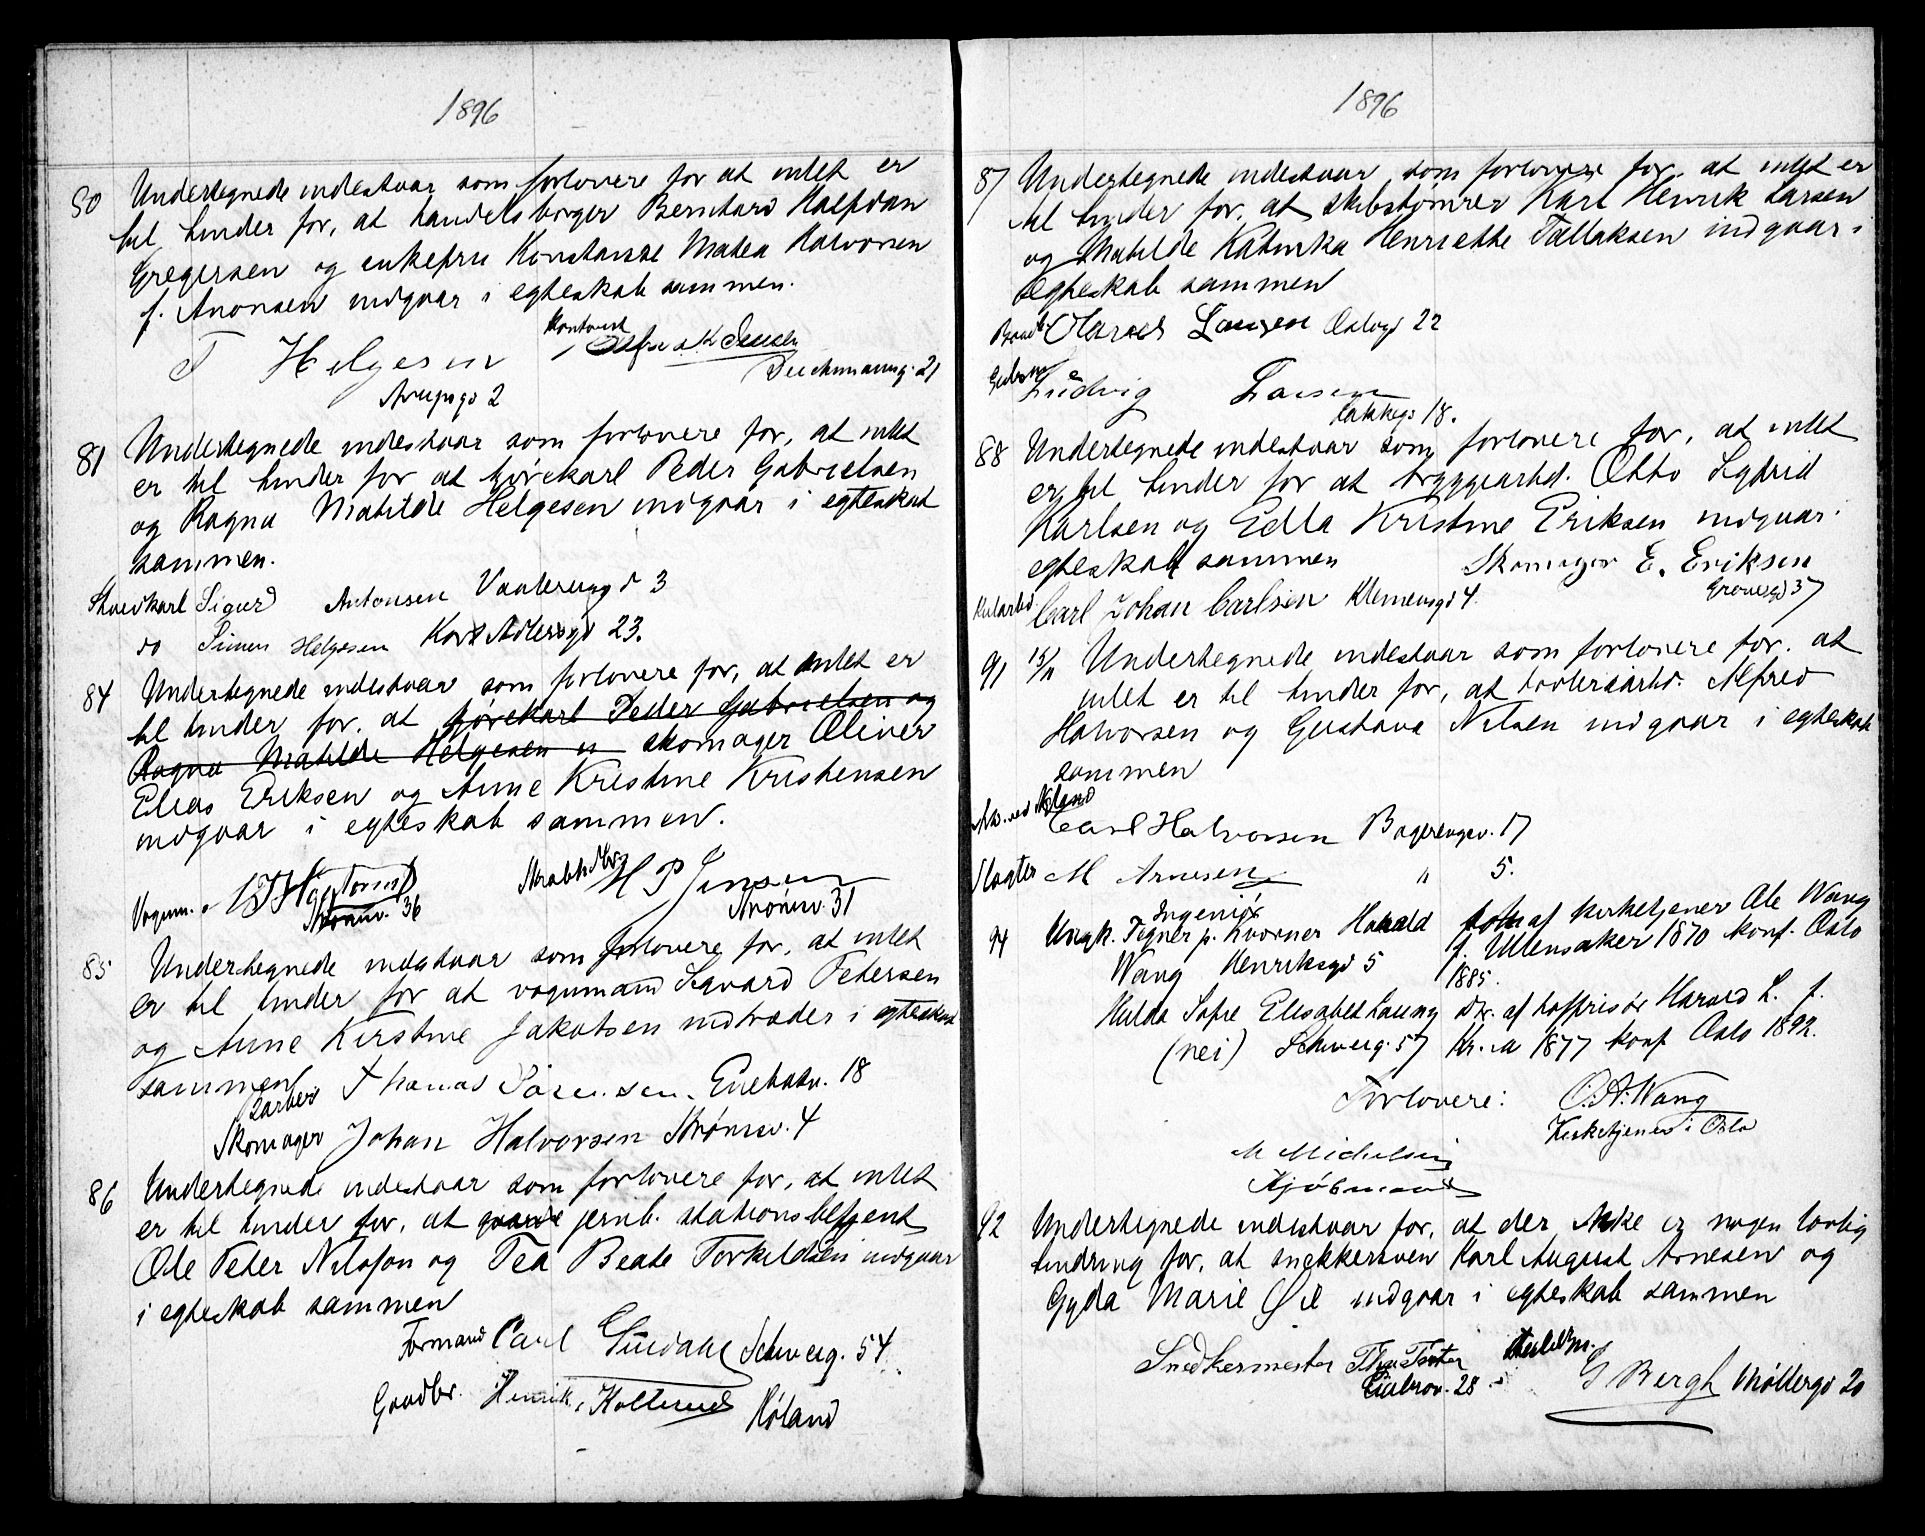 1896
80 Undertegnede indestaar som forlovere for at intet er
til hinder for, at handelsborger Bernhard Halfdan
Gregersen og enkefru Konstanse Matea Halvorsen
f. Aronsen indgaar i egteskab sammen.
T Helgesen
Arupsgd 2
Kontorist
Deichmannsg. 21
81 Undertegnede indestaar som forlovere for, at intet
er til hinder for at kjørekarl Peder Gabrielsen
og Ragna Matilde Helgesen indgaar i egteskab
sammen.
Sigurd Antonsen Vaalerengd 3
do Simen Helgesen Kort Adlersgd 23.
84 Undertegnede indestaar som forlovere for, at intet er
til hinder for, at kjørekarl Peder Gabrielsen og
Ragna Matilde Helgesen in skomager Oliver
Elias Eriksen og Anne Kristine Kristensen
indgaar i egteskab sammen.
Vognm.
Strømsv. 36
H P Jensen
Strømsv. 31
85 Undertegnede indestaar som forlovere for, at intet
er til hinder for at vognmand Sevard Pedersen
og Anne Kirstine Jakobsen indtræder i egteskab
sammen
Barber Thomas Sørensen. Enebakv. 18
Skomager Johan Halvorsen Strømsv. 4
86 Undertegnede indestaar som forlovere for, at intet
er til hinder for, at gaard jernb. stationsbetjent
Ole Peder Nilssen og Tea Beate Torkildsen indgaar
i egteskab sammen
Formand Carl Schweig. 54
Gaardbr. Henrik Kollerud Høland
1896
87 Undertegnede indestaar som forlovere for, at intet er
til hinder for, at skibstømrer Karl Henrik Larsen
og Matilde Katinka Henriette Tallaksen indgaar i
egteskab sammen
Larsen Oslogd 22
Ludvig Larsen
Lakkegd 18.
88 Undertegnede indestaar som forlovere for, at intet
er til hinder for at bryggiarbd. Otto Sigvrid
Karlsen og Edla Kristine Eriksen indgaar i
egteskab sammen
Skomager E. Eriksen
Grønlsgd 37
Carl Johan Carlsen Klemensgd 4
91 15/11 Undertegnede indestaar som forlovere for, at
intet er til hinder for, at Alfred
Halvorsen og Gustava Nilsen indgaar i egteskab
sammen
Carl Halvorsen Bagerengsv. 17
Slagter M Arnesen " 5.
94 Ungk. Ingeniør
Tegner p. Kværner Harald
Wang Henriksgd 5
søn af kirketjener Ole Wang
f. Ullensaker 1870 konf. Oslo
1885.
Hulda Sofie Elisabet Laung
(nei) Schweig. 57
Dtr. af hoffrisør Harald L. f.
Kr.a 1877 konf Oslo 1892.
Forlovere: O. A. Wang
Kirketjener i Oslo
M Michelsen
Kjøbmand
92 Undertegnede indestaar for, at der ikke er nogen lovlig
hindring for, at snekkersven Karl August Arnesen og
Gyda Marie Øie indgaar i egteskab sammen
Snedkermester
28
G Bergh Møllergd 20